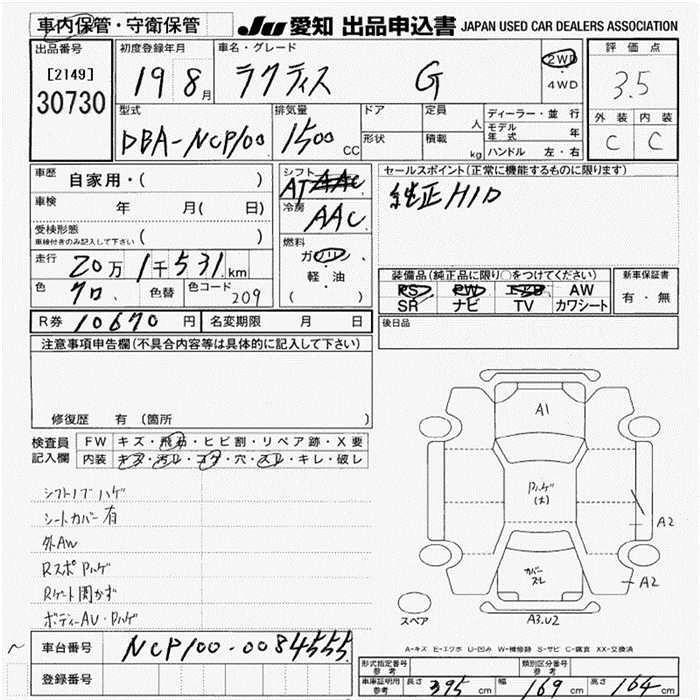 車内保管・守衛保管
JU 愛知 出品申込書 JAPAN USED CAR DEALERS ASSOCIATION
出品番号
[2149]
30730
初度登録年月
19 8月
車名・グレード
ラクティス G
2WD
4WD
評価点
3.5
外装 内装
C C
型式
DBA-NCP100
排気量
1500 CC
ドア
形状
定員 人
積載 kg
ディーラー・並行
モデル年式 年
ハンドル 左・右
車歴 自家用・( )
車検 年 月( 日)
受検形態
車検付きのみ記入して下さい ( )
走行 20万1千531km
色 クロ、 色替 色コード 209
シフト AT AAC
冷房 AAC
燃料
ガソリン
軽・油
( )
セールスポイント(正常に機能するものに限ります)
純正HID
装備品(純正品に限り○をつけてください)
PS PW エアB AW
SR ナビ TV カワシート
新車保証書
有・無
後日品
R券 10670円 名変期限 月 日
注意事項申告欄(不具合内容等は具体的に記入して下さい)
修復歴 有 (箇所 )
検査員記入欄
FW キズ・飛石・ヒビ割・リペア跡・X要
内装 キズ・汚レ・コゲ・穴・スレ・キレ・破レ
シフトノブハゲ
シートカバー有
外AW
RスポPハゲ
Rゲート開かず
ボディーAU・Pハゲ
A1
Pハゲ
(大)
カバー
スレ
A2
A2
A3.U2
スペア
A-キズ E-エクボ U-凹み W-補修跡 S-サビ C-腐食 XX-交換済
~ 車台番号 NCP100-0084555
登録番号
形式指定番号 参考
類別区分番号 参考
車庫証明用 参考 長さ 395cm 幅 169cm 高さ 164cm